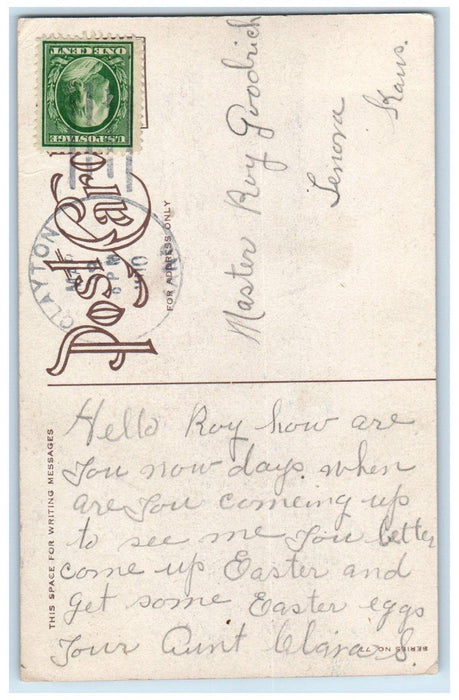 U.S. POSTAGE
ONE CENT
CLAYTON
6 PM
1910
Post Card
FOR ADDRESS ONLY
Master Roy Goodrich
Lenora
Kans.
THIS SPACE FOR WRITING MESSAGES
Hello Roy how are
you now days. when
are you comeing up
to see me you better
come up Easter and
get some Easter eggs
your Aunt Clara S.
SERIES NO. 77